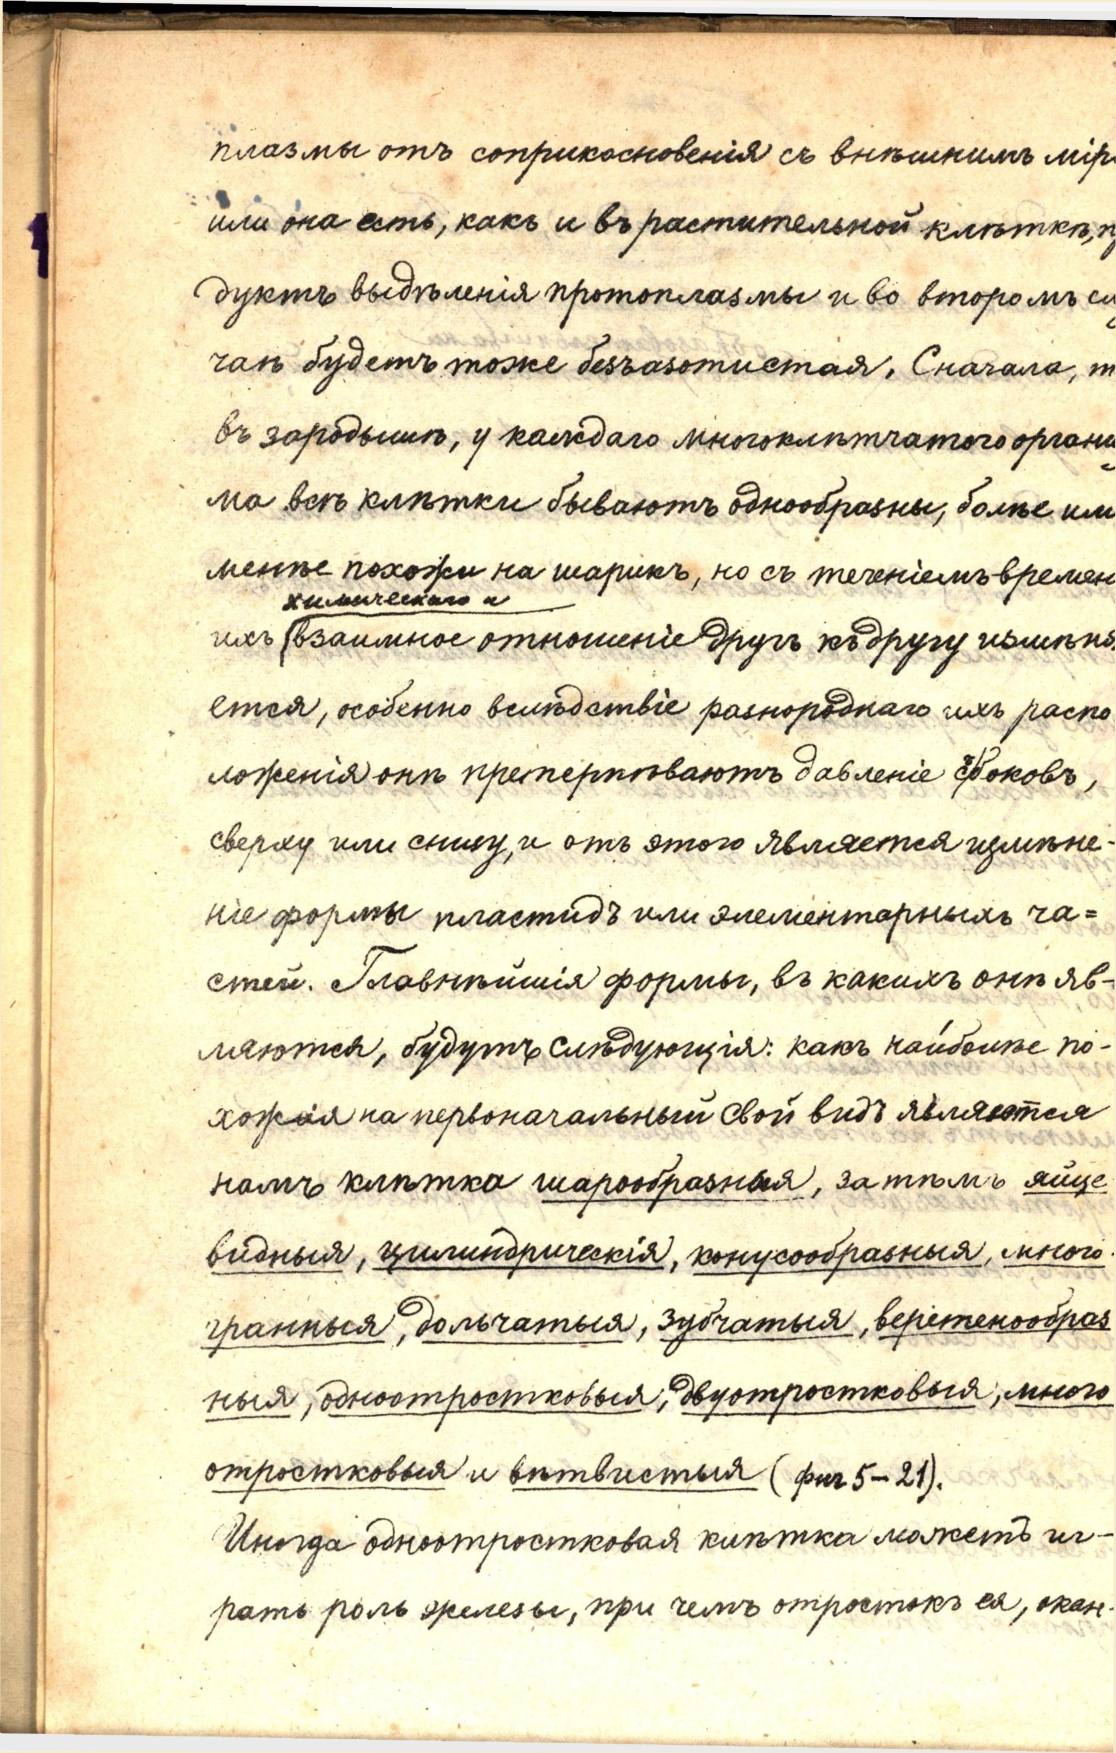 плазмы отъ соприкосновенія съ внѣшнимъ мір
или она есть, какъ и въ растительной клѣткѣ, п
дуктъ выдѣленія протоплазмы и во второмъ сл
чаѣ будетъ тоже безъазотистая. Сначала, т
въ зародышѣ, у каждаго многоклѣтчатого органи
ма всѣ клѣтки бываютъ однообразны, болѣе или
менѣе похожи на шарикъ, но съ теченіемъ времен
химическаго и
ихъ взаимное отношеніе другъ къ другу измѣня
ется, особенно вслѣдствіе разнороднаго ихъ распо
ложенія онѣ претерпѣваютъ давленіе съ боковъ,
сверху или снизу, и отъ этого является измѣне-
ніе формы пластидъ или элементарныхъ ча=
стей. Главнѣйшія формы, въ какихъ онѣ яв-
ляются, будутъ слѣдующія: какъ наиболѣе по-
хожія на первоначальный свой видъ являются
намъ клѣтка шарообразныя, затѣмъ яйце
видныя, цилиндрическія, конусообразныя, много-
гранныя, дольчатыя, зубчатыя, веретенообраз
ныя, одноотростковыя, двуотростковыя, много
отростковыя и вѣтвистыя (фиг 5-21).
Иногда одноотростковая клѣтка можетъ иг-
рать роль железы, при чемъ отростокъ ея, окан-